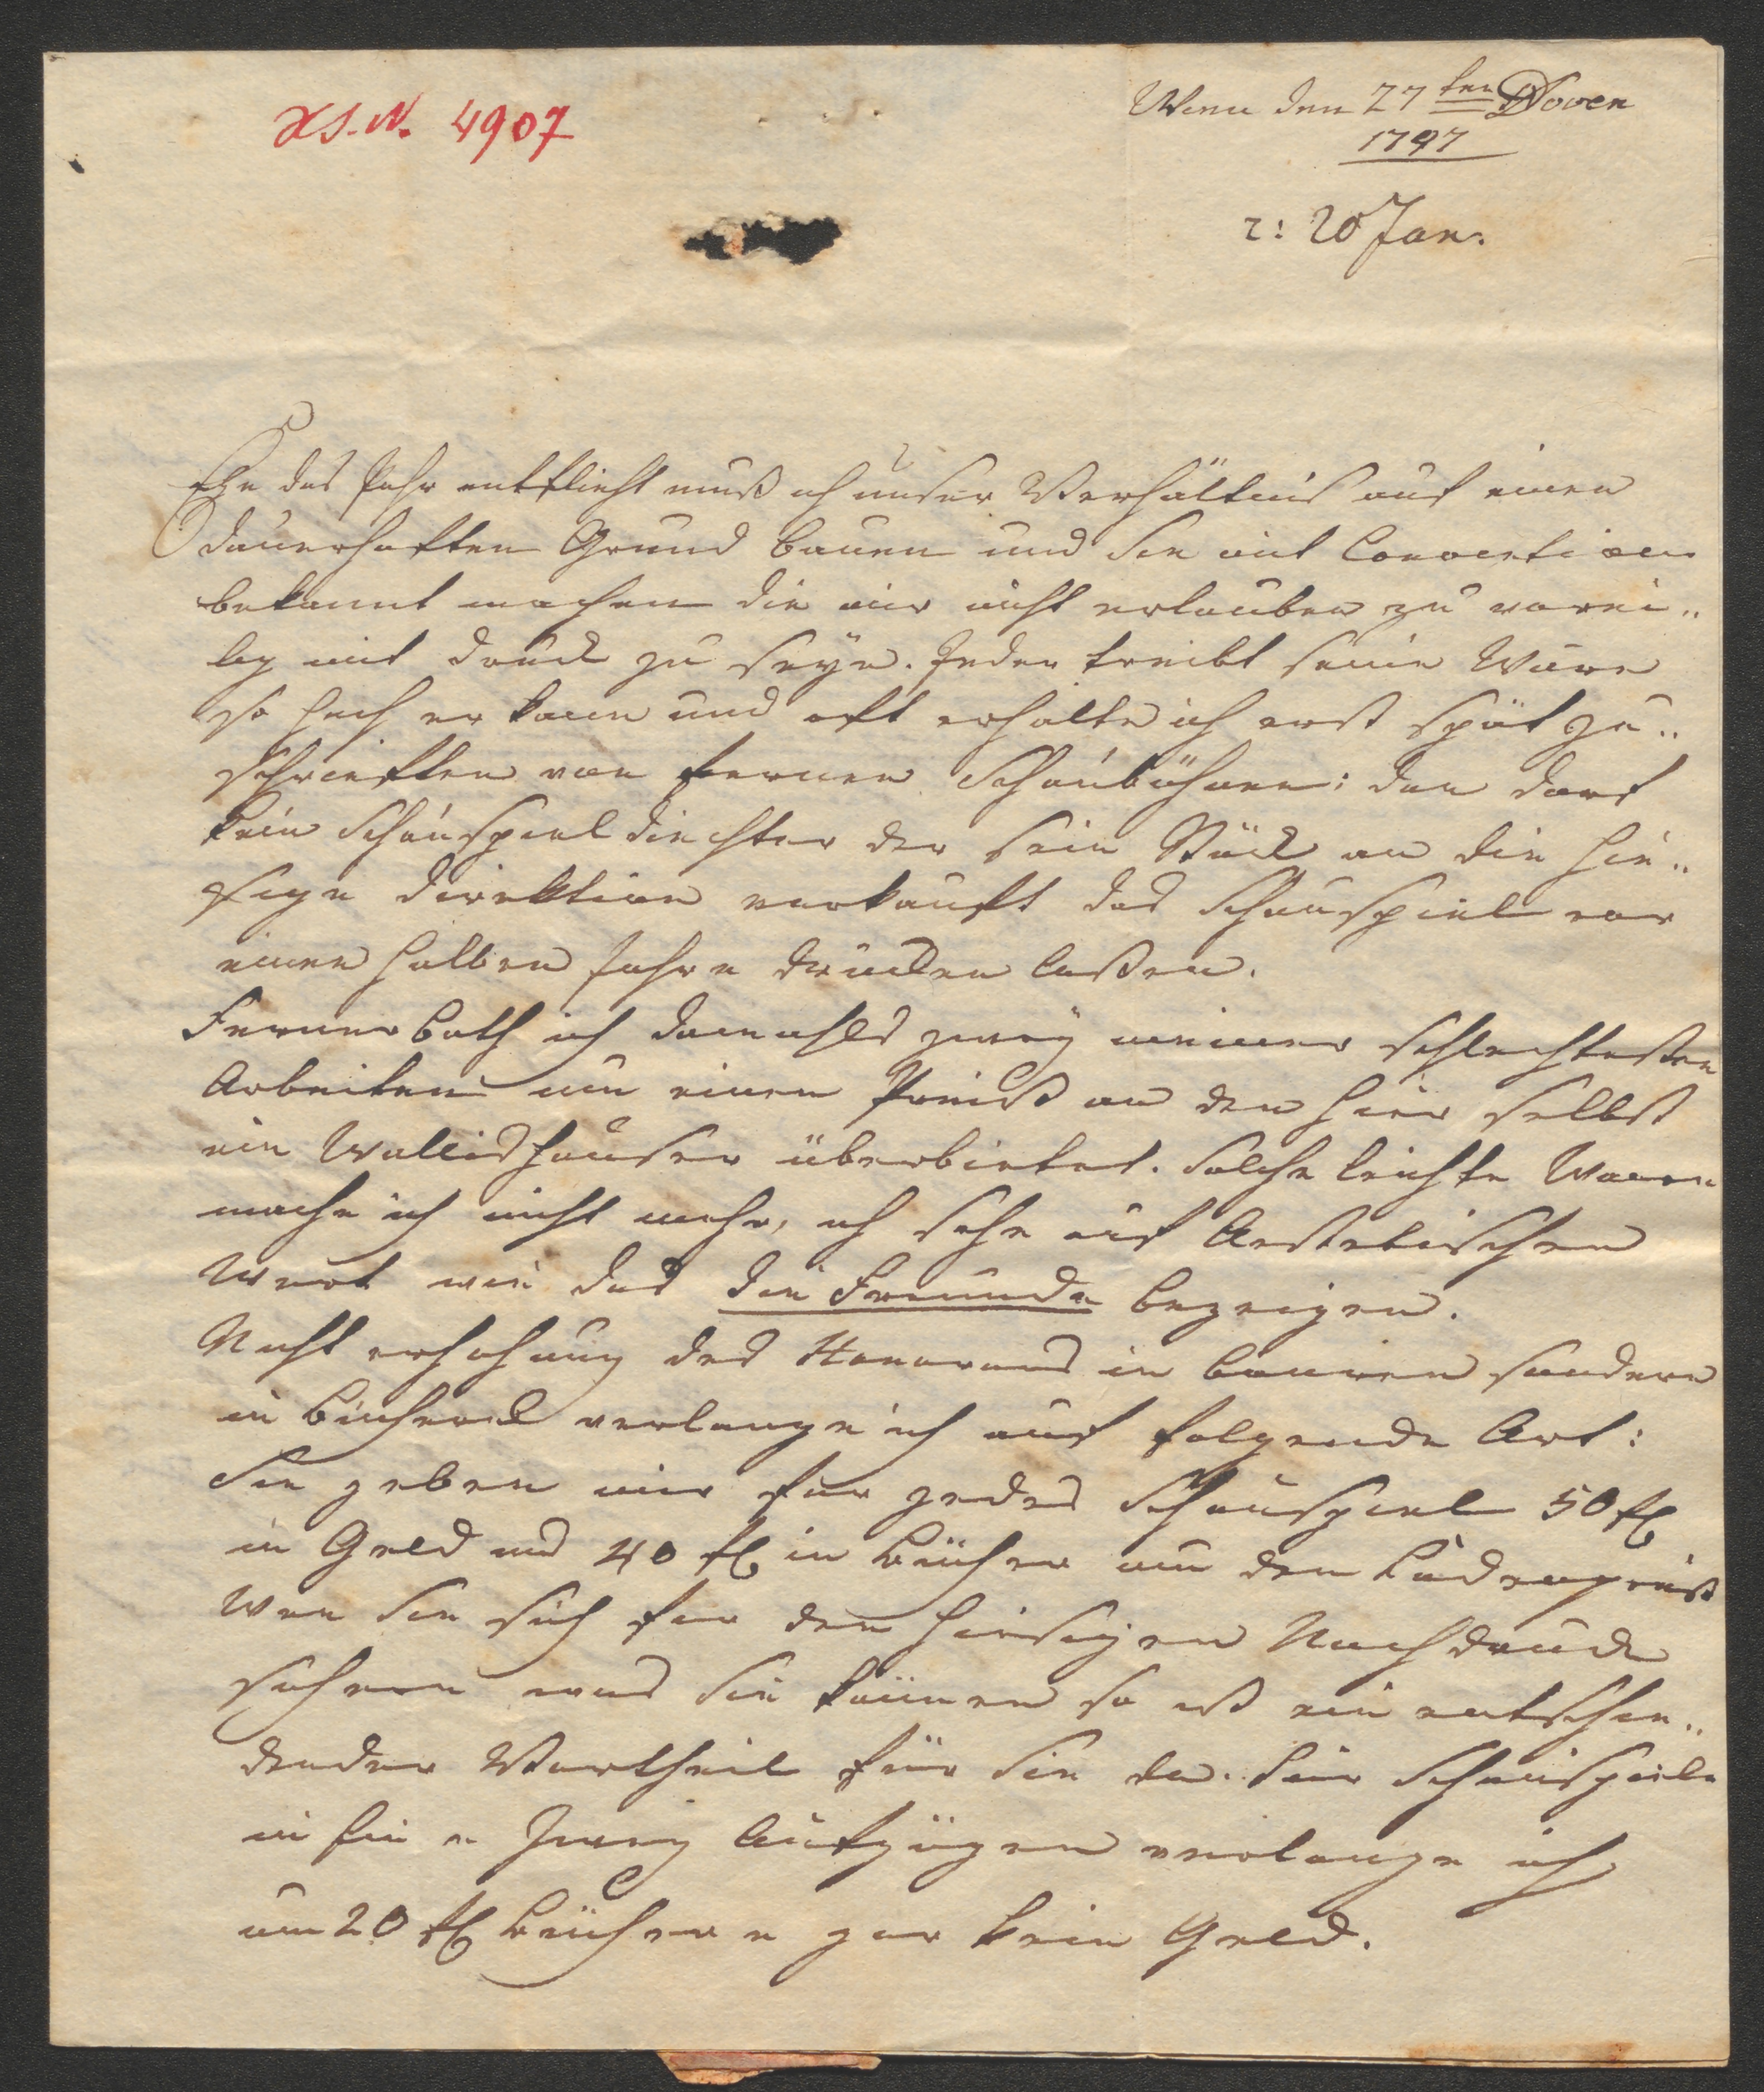 HS. N. 4907
Wien den 27ten Novem
1797
r: 20 Jan.
Ehe das Jahr entflieht muß ich unser Verhältnis auf einen
dauerhaften Grund bauen und Sie mit
bekannt machen die mir nicht erlauben zu vorei„
lig mit Druck zu seyn. Jeder treibt seine Ware
so hoch er kann und oft erhalte ich erst spät Zu„
schrieften von fernen Schaubühnen: den darf
kein Schauspieldichter der sein Stück an die hie„
sige Direktion verkauft das Schauspiel vor
einen halben Jahre drucken laßen.
Ferner both ich damahls zwey meiner schlechtesten
Arbeiten um einen Preiß an den hier selbst
ein Wallishauser überbietet. Solche leichte Waren
mache ich nicht mehr, ich sehe auf Aestetischen
Wert wie das die Freunde bezeigen.
Nicht erhohung des Honorars in baaren sondern
in Büchern verlange ich auf folgende Art:
Sie geben mir fur jedes Schauspiel 50 fl
in Geld und 40 fl in Bücher um den Ladenpreiß
Wen Sie sich fur den hiesigen Nachdruck
sichern was Sie können so ist ein entschei„
dender Vortheil für Sie da. Für Schauspiele
in ein u Zwey Aufzügen verlange ich
um 20 fl Bücher u gar kein Geld.